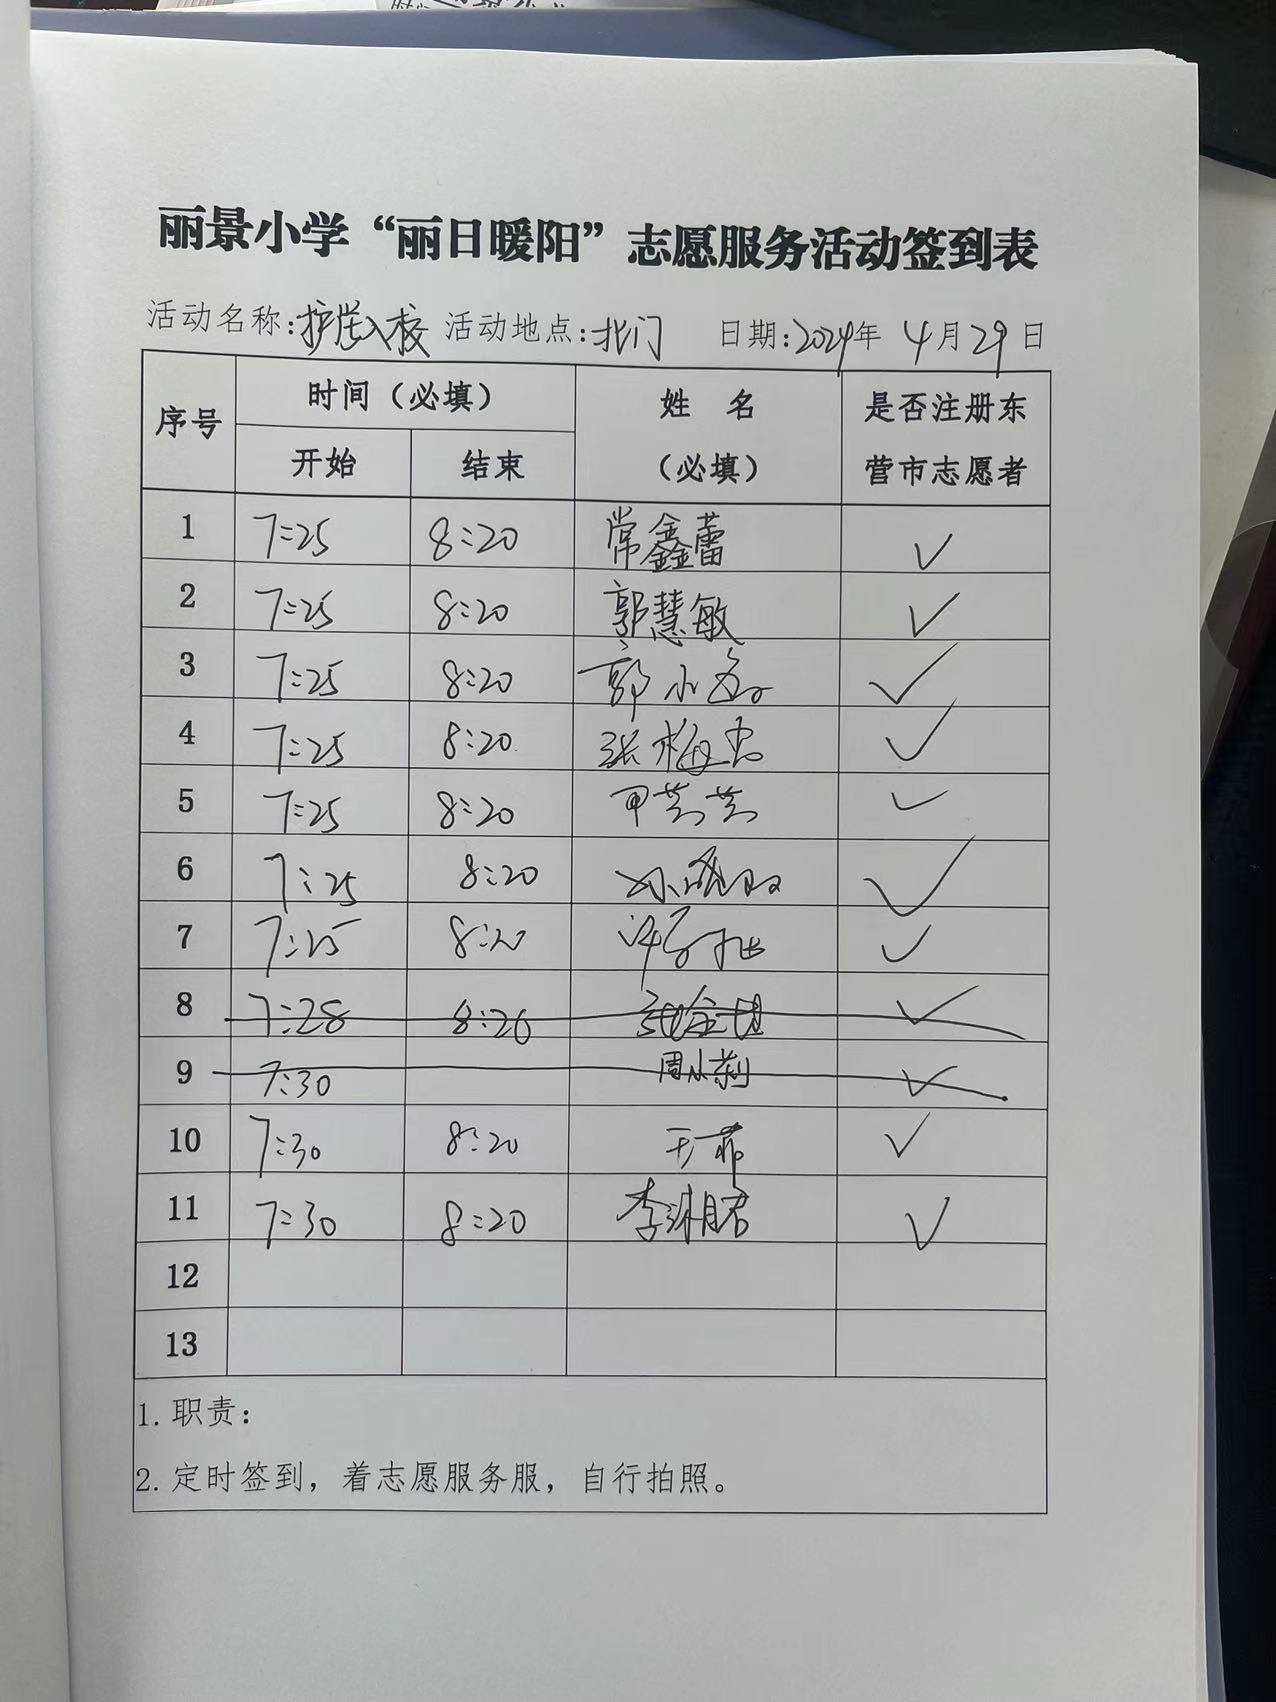 丽景小学“丽日暖阳”志愿服务活动签到表
活动名称:护学入校 活动地点:北门 日期:2024年 4月29日
序号 时间（必填） 姓 名 （必填） 是否注册东营市志愿者
开始 结束
1 7:25 8:20 常鑫蕾 ✓
2 7:25 8:20 郭慧敏 ✓
3 7:25 8:20 郭小 ✓
4 7:25 8:20 张梅 ✓
5 7:25 8:20 芸芸 ✓
6 7:25 8:20 孙 ✓
7 7:25 8:20 许 ✓
8 7:28 8:20 ✓
9 7:30 周从荆 ✓
10 7:30 8:20 于菲 ✓
11 7:30 8:20 李沐君 ✓
12
13
1. 职责：
2. 定时签到，着志愿服务服，自行拍照。